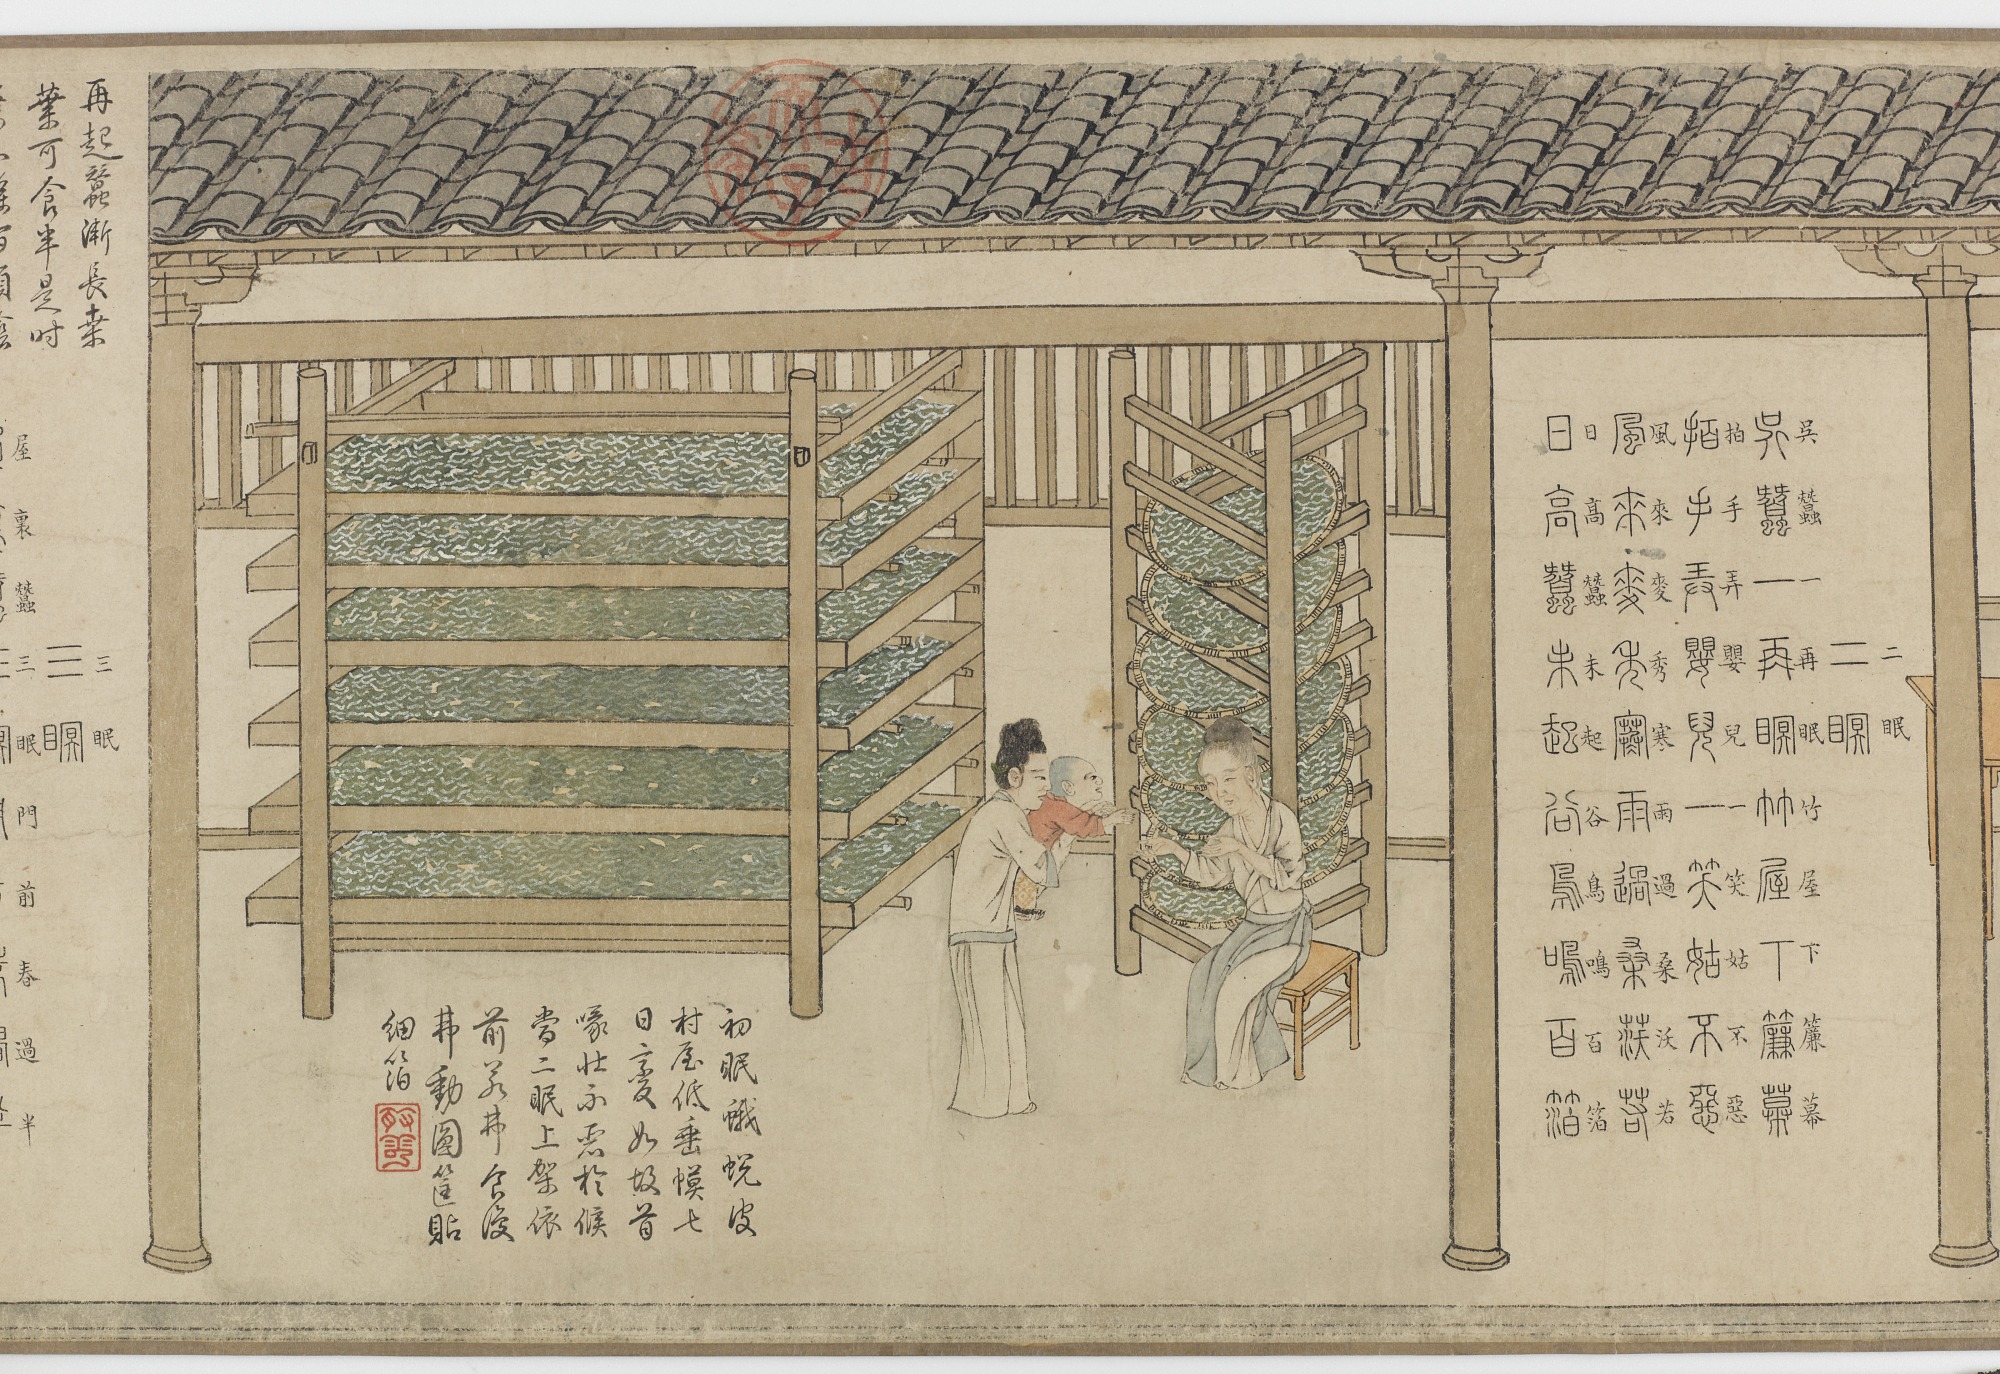 二眠
二眠
吳蠶一再眠竹屋下簾幕
吳蠶一再眠竹屋下簾幕
拍手弄嬰兒一笑姑不惡
拍手弄嬰兒一笑姑不惡
風來麥秀寒雨過桑沃若
風來麥秀寒雨過桑沃若
日高蠶未起谷鳥鳴百箔
日高蠶未起谷鳥鳴百箔
初眠蛾蛻皮
村屋低垂幙七
日變如故首
喙壯不惡於候
當二眠上架依
前若弗食復
弗動圓筐貼
細箔
三眠
三眠
屋裏蠶三眠門前春過半
再起蠶漸長桑
葉可食半是时